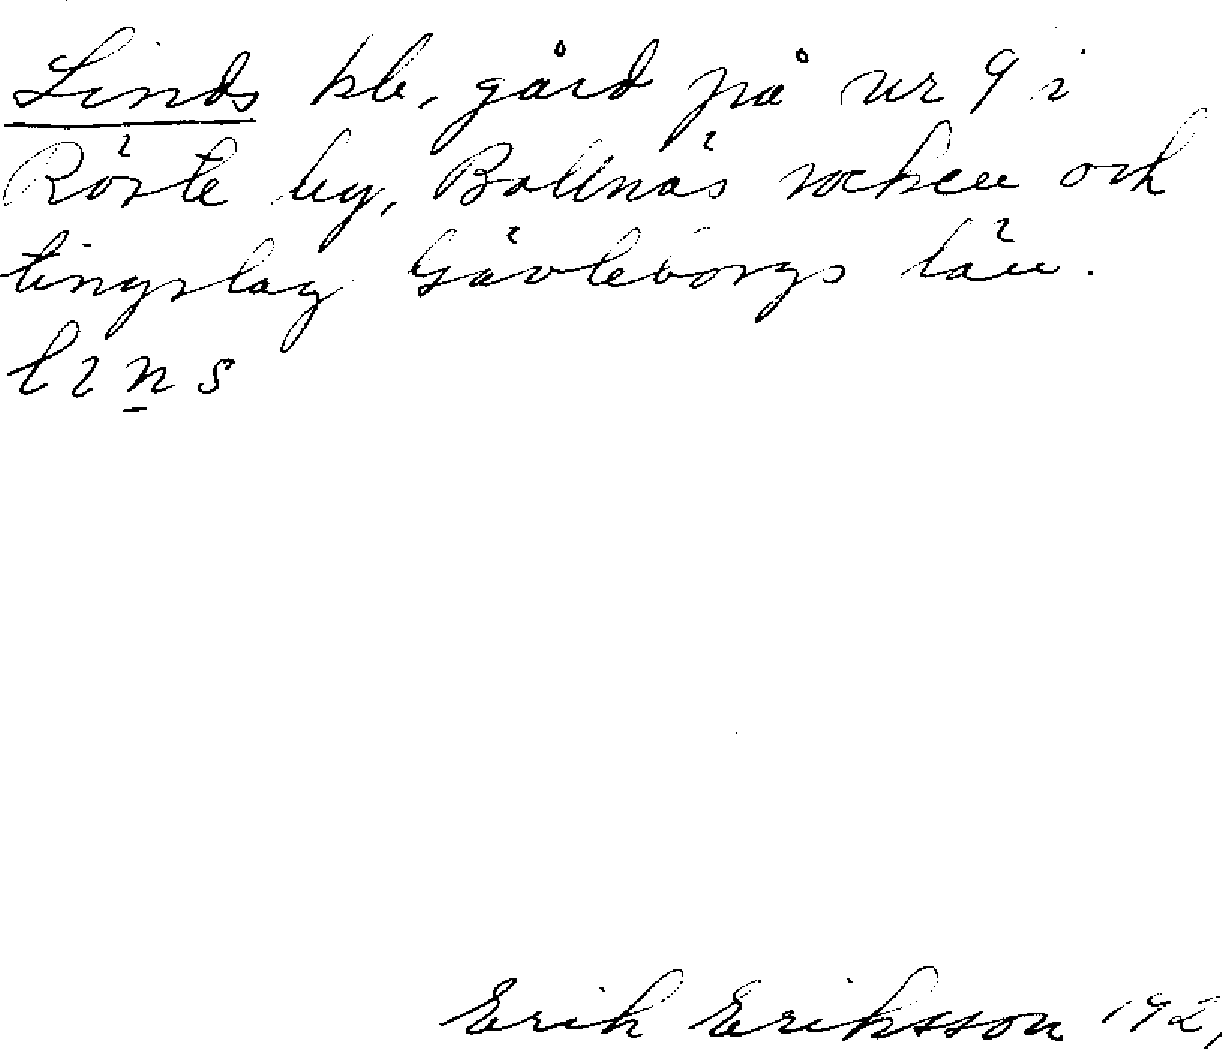 Linds kb. gård på nr 9 i
Röste by, Bollnäs socken och
tingslag Gävleborgs län.
lins
Erik Eriksson 192